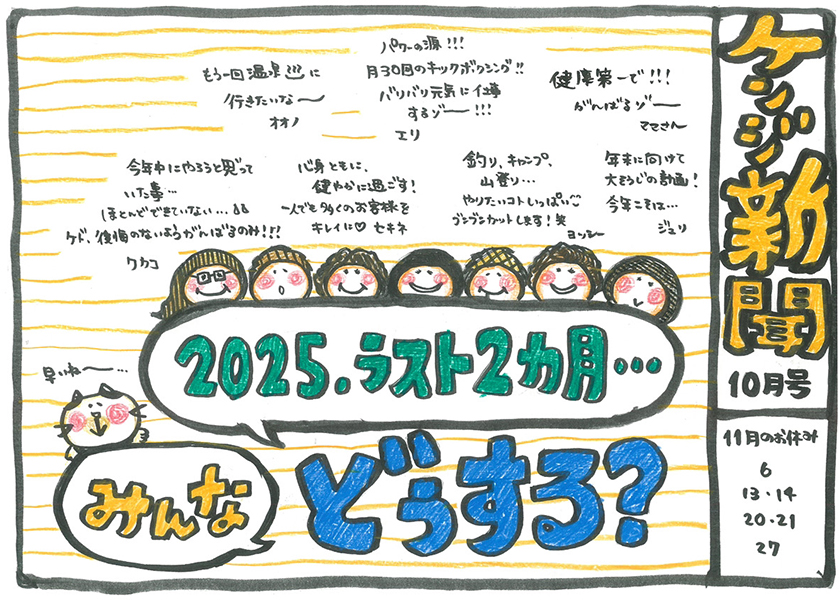 ケンジ新聞
10月号
11月のお休み
6
13・14
20・21
27
パワーの源!!!
月30回のキックボクシング!!
バリバリ元気に仕事
するゾー!!!
エリ
もう一回温泉♨に
行きたいな〜
オオノ
健康第一で!!!
がんばるゾー
ママさん
今年中にやろうと思って
いた事…
ほとんどできていない…
ケド、後悔のないようがんばるのみ!!!
ワカコ
心身ともに、
健やかに過ごす!
一人でも多くのお客様を
キレイに♡ セキネ
釣り、キャンプ、
山登り…
やりたいコトいっぱい
ブンブンカットします!笑
ヨッシー
年末に向けて
大そうじの計画!
今年こそは…
ジュリ
2025.ラスト2カ月…
早いね〜…
みんな
どうする?